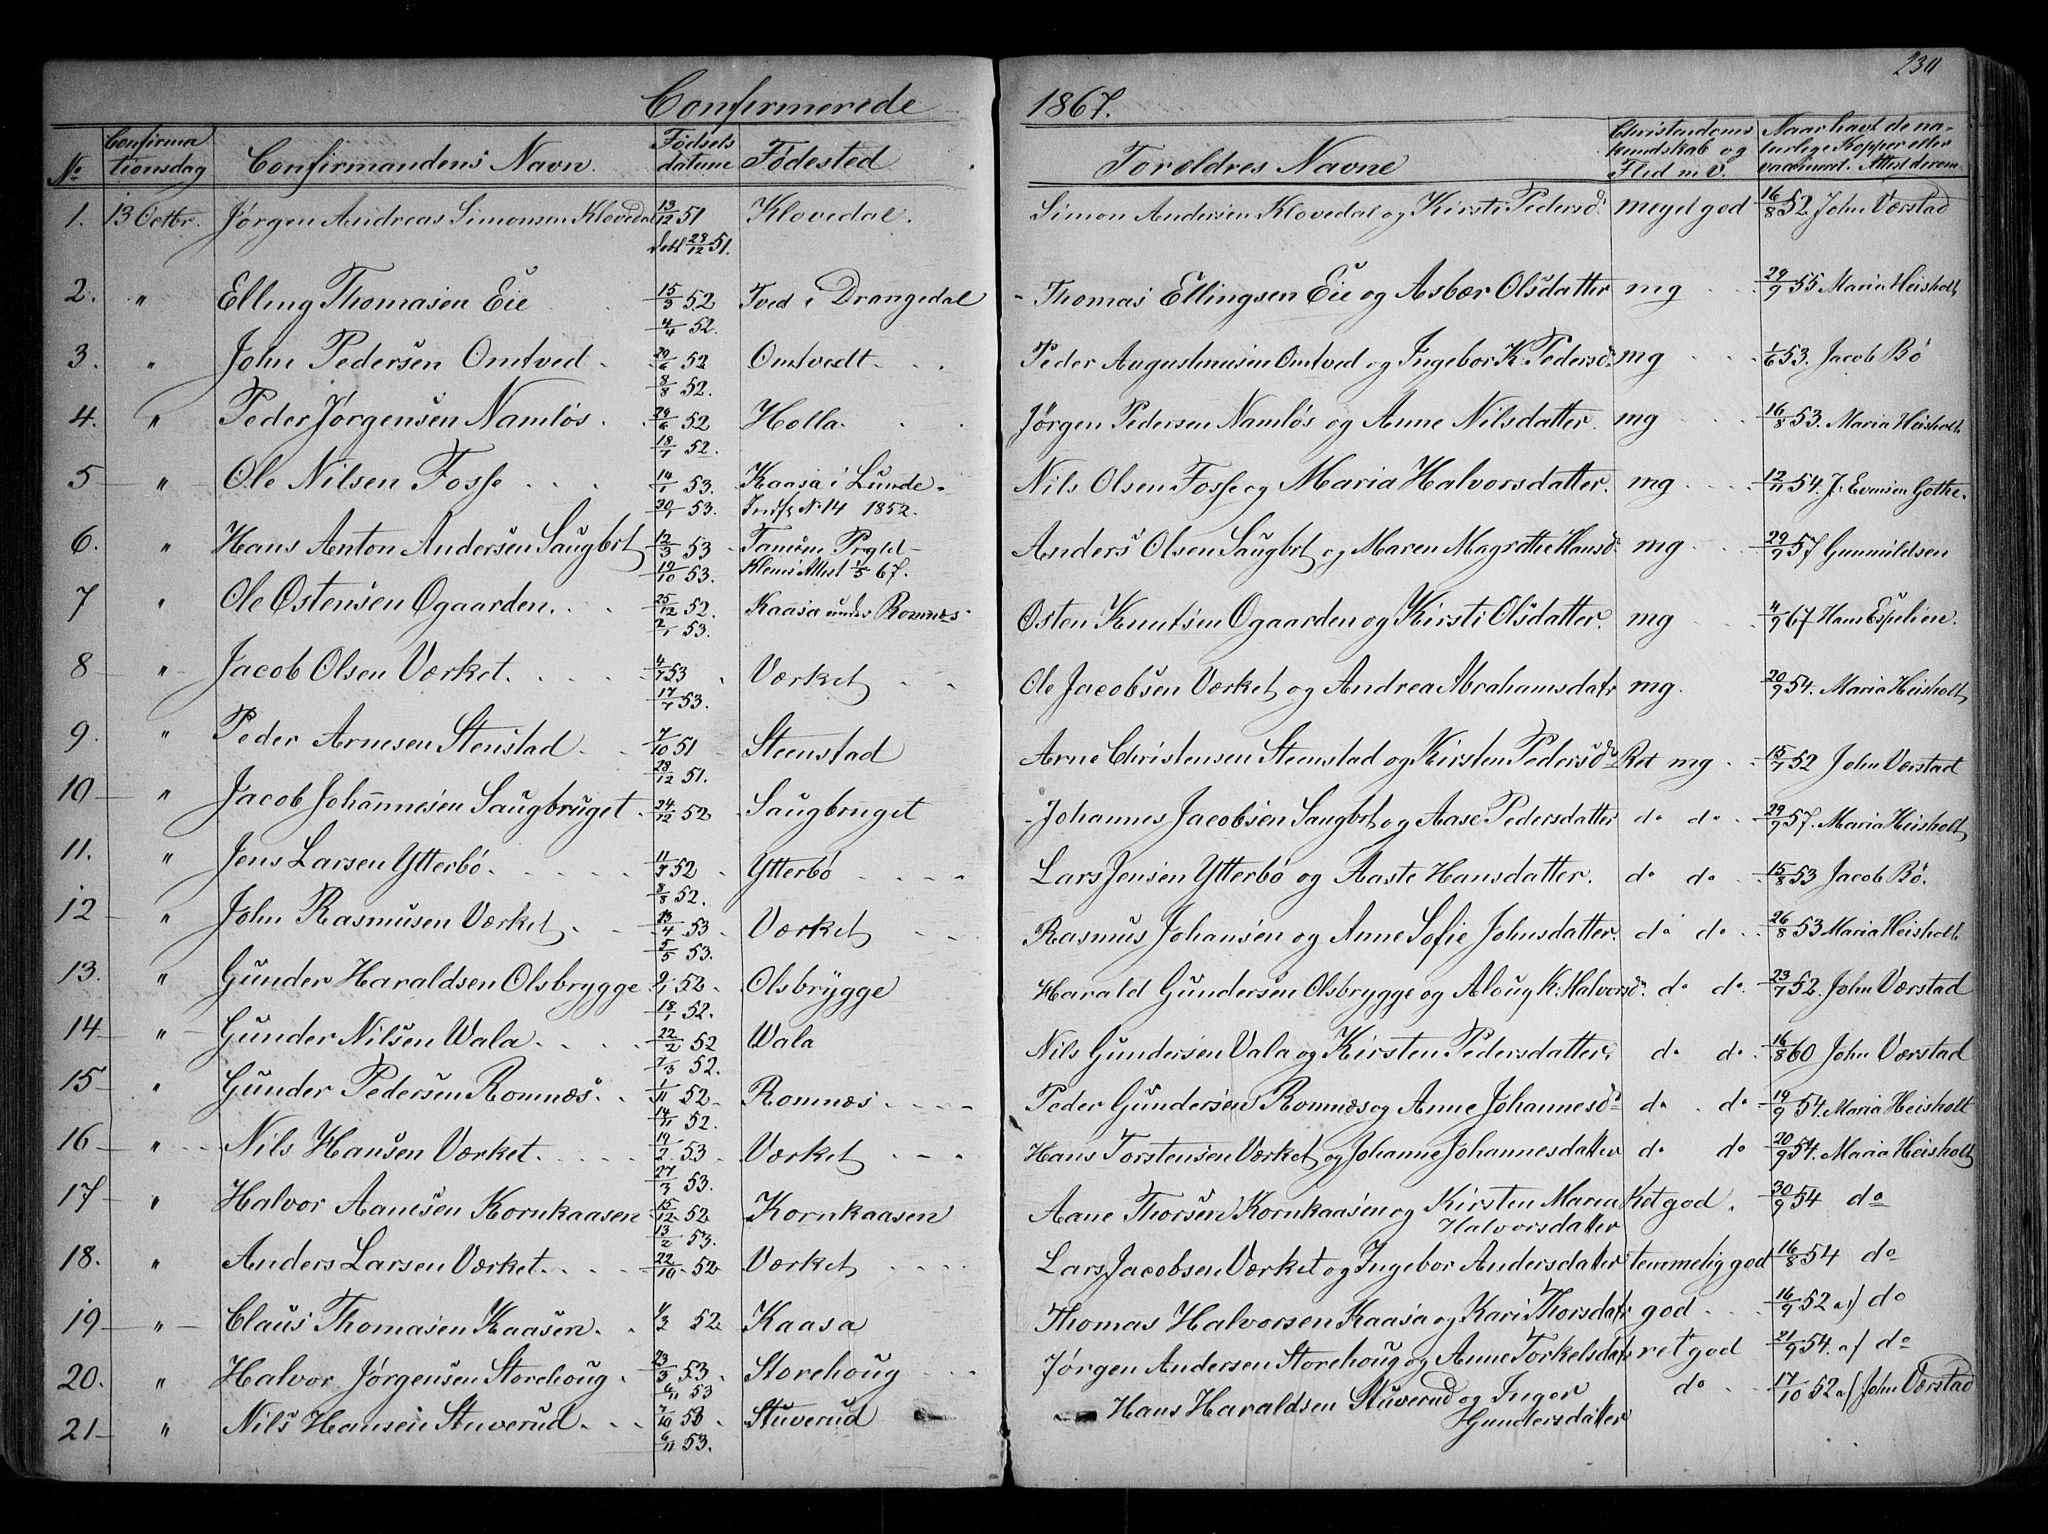 230
Confirmerede 1867.
No Confirmationsdag Confirmandens Navn. Fødsels datum Fødested Foreldres Navne Christendoms kundskab og Flid m. V. Naar havt de naturlige Kopper eller vaccineret. Attest derom.
1. 13 Octbr. Jørgen Andreas Simonsen Klovedal 13/12 51 Klovedal. Simon Andersen Klovedal og Kirsti Pedersd. meget god 16/8 52 John Værstad
døbt 28/12 51.
2. " Elling Thomasen Eie 15/3 52 Tved i Drangedal Thomas Ellingsen Eie og Asbær Olsdatter mg 29/9 55 Maria Heisholt
4/4 52.
3. " John Pedersen Omtved 29/6 52 Omtvedt Peder Augustinusen Omtved og Ingebor K. Pedersd. mg 1/6 53. Jacob Bø
8/8 52.
4. " Peder Jørgensen Namløs 29/6 52 Holla. Jörgen Pedersen Namløs og Anne Nilsdatter. mg 16/8 53. Maria Heisholt
18/7 52.
5 " Ole Nilsen Fosse 14/1 53. Kaasa i Lunde Nils Olsen Fosse og Maria Halvorsdatter. mg 12/11 54. J. Evensen Gothe.
20/1 53. Indf. N. 14 1852.
6. " Hans Anton Andersen Saugbrt 12/3 53 Tanum Prgld Anders Olsen Saugbrt og Maren Magrethe Hansd. mg 29/9 57 Gunnuldsen
19/10 53. Klems Attest 1/5 67.
7 " Ole Østensen Øgaarden. 25/12 52. Kaasa under Romnæs Østen Knutsen Øgaarden og Kirsti Olsdatter. mg 4/9 67 Hans Espelien.
2/1 53.
8 " Jacob Olsen Værket. 4/7 53 Værket Ole Jacobsen Værket og Andrea Abrahamsdatr mg. 20/9 54. Maria Heisholt
17/7 53.
9. " Peder Arnesen Stenstad 7/10 51 Steenstad Arne Christensen Steenstad og Kirsten Pedersd. Ret mg 15/7 52 John Værstad
28/12 51.
10 " Jacob Johannesen Saugbruget 24/12 52 Saugbruget Johannes Jacobsen Saugbrt og Aase Pedersdatter do do 29/9 57. Maria Heisholt
11. " Jens Larsen Ytterbø. 11/7 52 Ytterbø Lars Jensen Ytterbø og Aaste Hansdatter. do do 15/8 53 Jacob Bø.
8/8 52.
12 " John Rasmusen Værket. 13/4 53 Værket Rasmus Johansen og Anne Sofie Johnsdatter. do do 26/8 53 Maria Heisholt
5/5 53.
13. " Gunder Haraldsen Olsbrygge 9/1 52 Olsbrygge Harald Gundersen Olsbrygge og Aloug K. Halvorsd. do do 23/7 52. John Værstad
18/1 52.
14 " Gunder Nilsen Wala 22/2 52 Wala Nils Gundersen Vala og Kirsten Pedersdatter. do do 16/8 60 John Værstad
7/3 52.
15 " Gunder Pedersen Romnæs 1/11 52 Romnæs Peder Gundersen Romnæs og Anne Johannesd. do do 19/9 54. Maria Heisholt
14/11 52.
16 " Nils Hansen Værket. 19/2 53 Værket Hans Torstensen Værket og Johanne Johannesdatter do do 20/9 54. Maria Heisholt
27/3 53.
17 " Halvor Aanesen Kornkaasen 15/12 52 Kornkaasen Aane Thorsen Kornkaasen og Kirsten Maria Ret god. 30/9 54 do
13/2 53. Halvorsdatter
18. " Anders Larsen Værket. 22/10 52 Værket Lars Jacobsen Værket og Ingebor Andersdatter temmelig god 16/8 54 do
19 " Claus Thomasen Kaasen. 52 Kaasa Thomas Halvorsen Kaasa og Kari Thorsdatr god 16/9 52 af do
20. " Halvor Jørgensen Storehoug 23/3 53 Storehoug Jørgen Andersen Storehoug og Anne Torkelsdatr ret god 21/9 54. af do
6/11 53
21 " Nils Hansen Stuverud 7/10 53 Stuverud Hans Haraldsen Stuverud og Inger do 17/10 52 af John Værstad
6/11 53. Gundersdatter